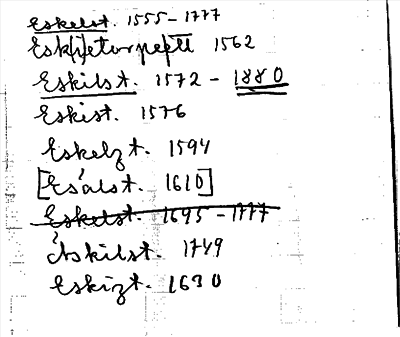 Eskelst. 1555-1777
Esk(i)etorpe 1562
Eskilst. 1572 - 1880
Eskist. 1576
Eskelzt. 1594
[Esalst. 1610]
Eskelst. 1695-1777
Etskilst. 1749
Eskizt. 1630